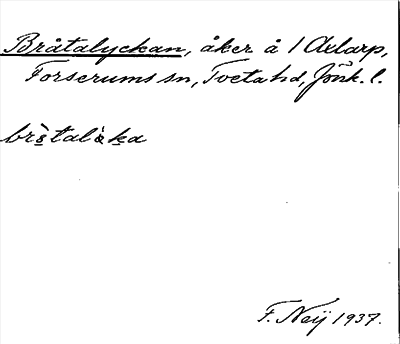 Bråtalyckan, åker å 1 Axlarp,
Forserums sn, Tveta hd, Jönk. l.
F. Neij 1937.